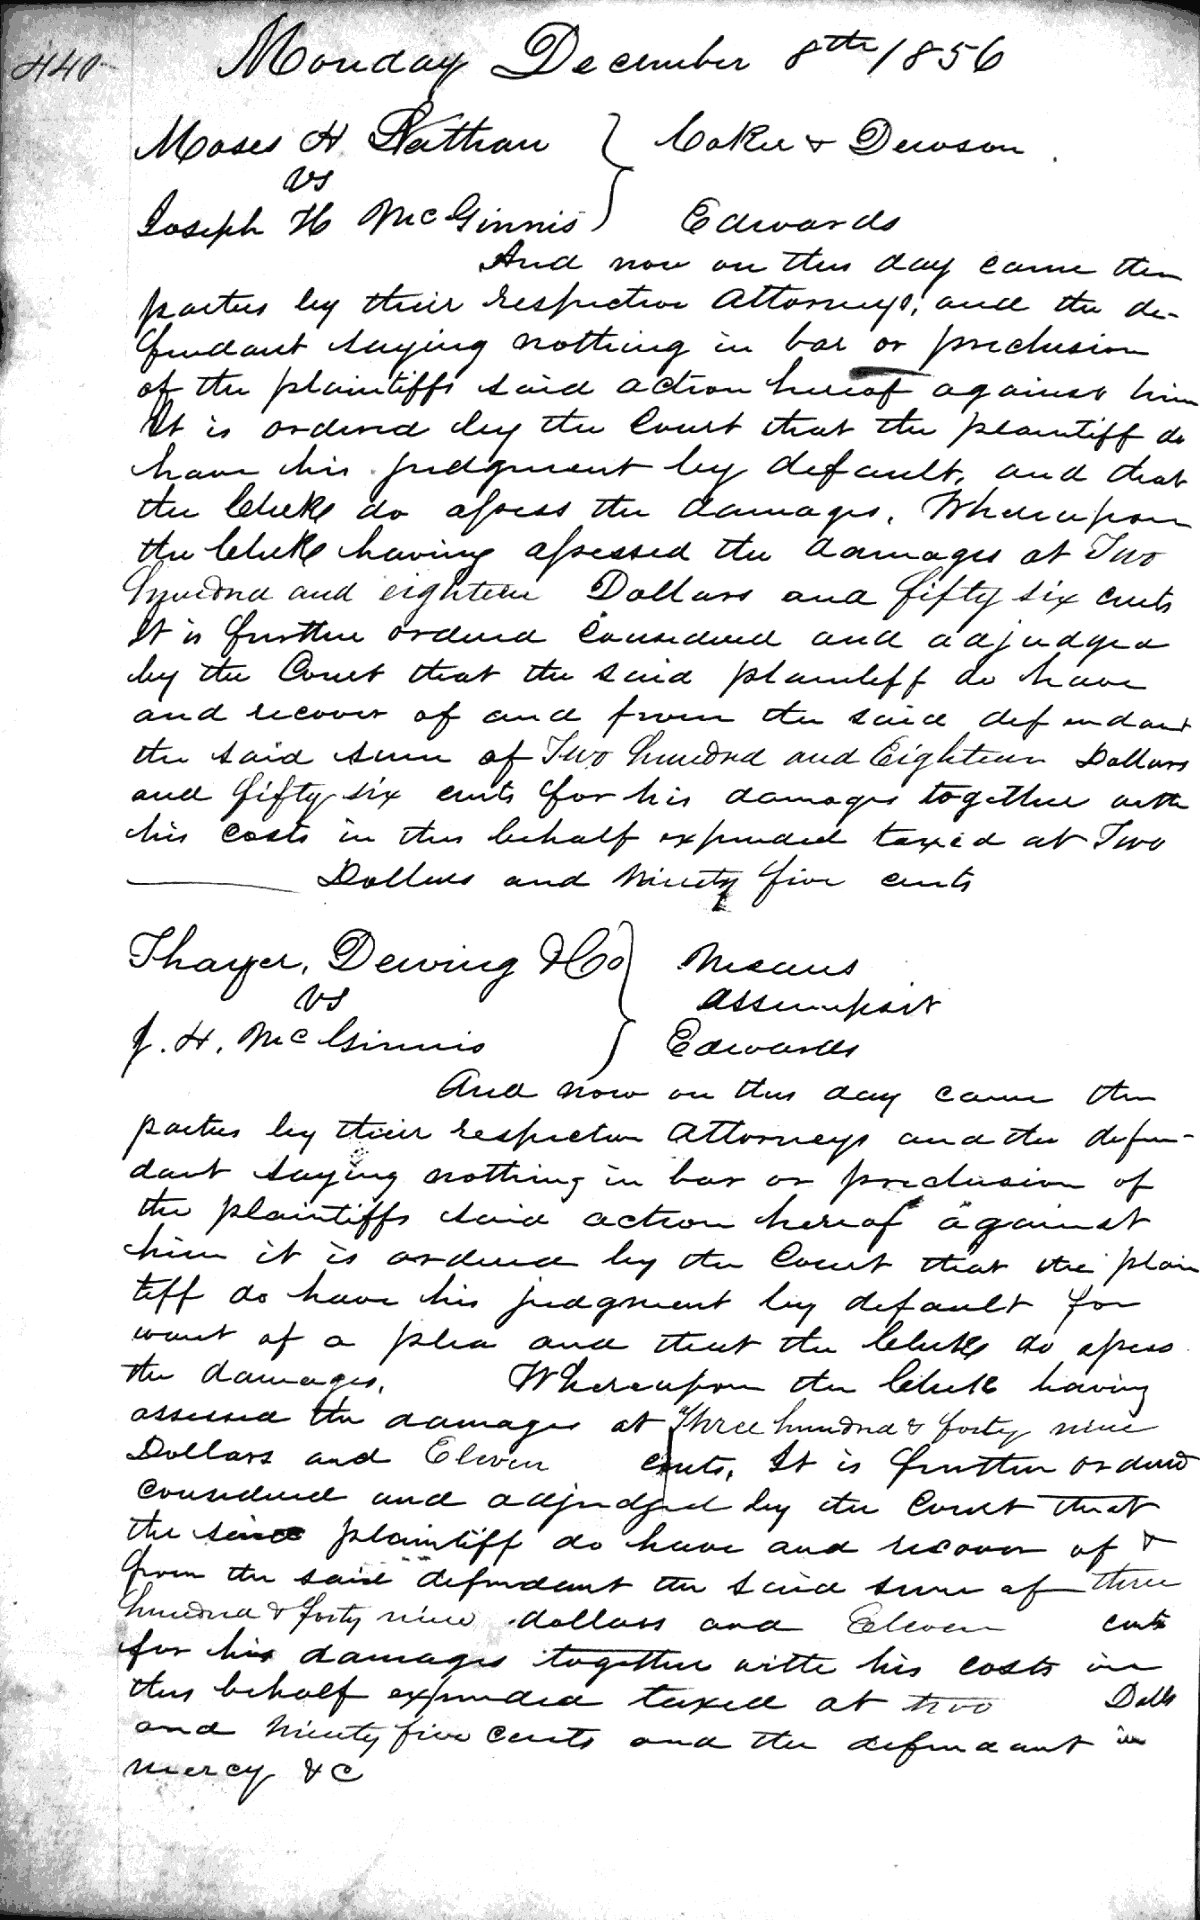 440
Monday December 8th 1856
Moses H Nathan } Coker & Dewson
vs
Joseph H McGinnis } Edwards
And now on this day came the
parties by their respective attorneys, and the de-
fendant saying nothing in bar or preclusion
of the plaintiffs said action hereof against him
It is ordered by the Court that the plaintiff do
have his judgment by default, and that
the Clerk do assess the damages. Whereupon
the Clerk having assessed the damages at Two
hundred and eighteen Dollars and fifty six cents
It is further ordered considered and adjudged
by the Court that the said plaintiff do have
and recover of and from the said defendant
the said sum of Two hundred and Eighteen Dollars
and fifty six cents for his damages together with
his costs in this behalf expended taxed at Two
Dollars and Ninety five cents
Thayer, Dewing & Co } Means
vs assumpsit
J. H. McGinnis } Edwards
And now on this day came the
parties by their respective attorneys and the defen-
dant saying nothing in bar or preclusion of
the plaintiffs said action hereof against
him it is ordered by the Court that the plain
tiff do have his judgment by default for
want of a plea and that the Clerk do assess
the damages. Whereupon the Clerk having
assessed the damages at Three hundred & forty nine
Dollars and Eleven cents. It is further ordered
considered and adjudged by the Court that
the said plaintiff do have and recover of &
from the said defendant the said sum of three
hundred & forty nine dollars and Eleven cents
for his damages together with his costs in
this behalf expended taxed at two Dolls
and Ninety five cents and the defendant in
mercy &c